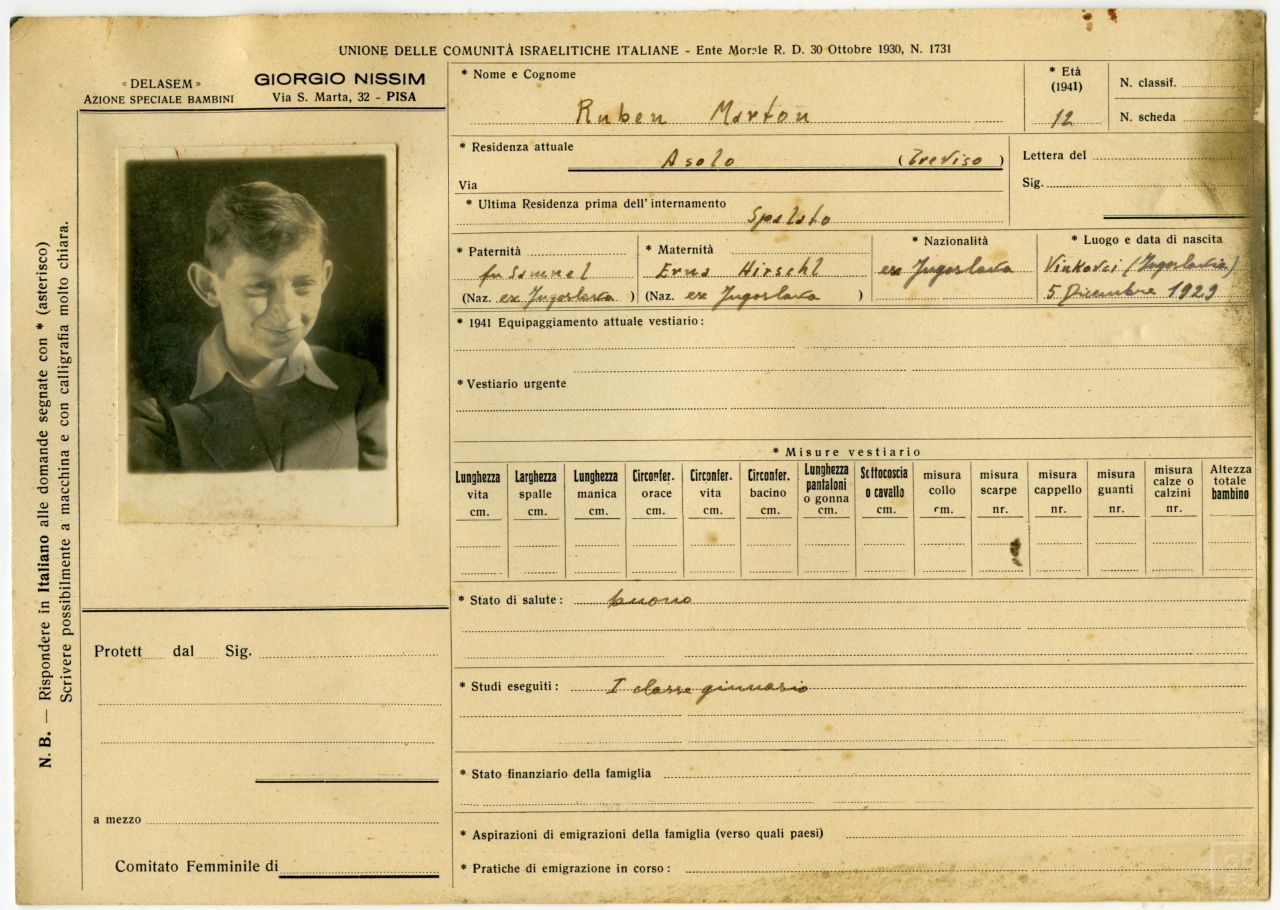 UNIONE DELLE COMUNITÀ ISRAELITICHE ITALIANE - Ente Morale R. D. 30 Ottobre 1930, N. 1731
« DELASEM »
AZIONE SPECIALE BAMBINI
GIORGIO NISSIM
Via S. Marta, 32 - PISA
N. B. — Rispondere in Italiano alle domande segnate con * (asterisco)
Scrivere possibilmente a macchina e con calligrafia molto chiara.
* Nome e Cognome
Ruben Marton
* Età
(1941)
12
N. classif.
N. scheda
* Residenza attuale
Asolo (Treviso)
Via
* Ultima Residenza prima dell'internamento
Spalato
Lettera del
Sig.
* Paternità
fu Samuel
(Naz. ex Jugoslava )
* Maternità
Erna Hirschl
(Naz. ex Jugoslava )
* Nazionalità
ex Jugoslava
* Luogo e data di nascita
Vinkovci (Jugoslavia)
5 Dicembre 1929
* 1941 Equipaggiamento attuale vestiario:
* Vestiario urgente
* Misure vestiario
Lunghezza vita cm.
Larghezza spalle cm.
Lunghezza manica cm.
Circonfer. orace cm.
Circonfer. vita cm.
Circonfer. bacino cm.
Lunghezza pantaloni o gonna cm.
Sottocoscia o cavallo cm.
misura collo cm.
misura scarpe nr.
misura cappello nr.
misura guanti nr.
misura calze o calzini nr.
Altezza totale bambino
* Stato di salute: buono
* Studi eseguiti: I classe ginnasio
* Stato finanziario della famiglia
* Aspirazioni di emigrazioni della famiglia (verso quali paesi)
* Pratiche di emigrazione in corso:
Protett dal Sig.
a mezzo
Comitato Femminile di